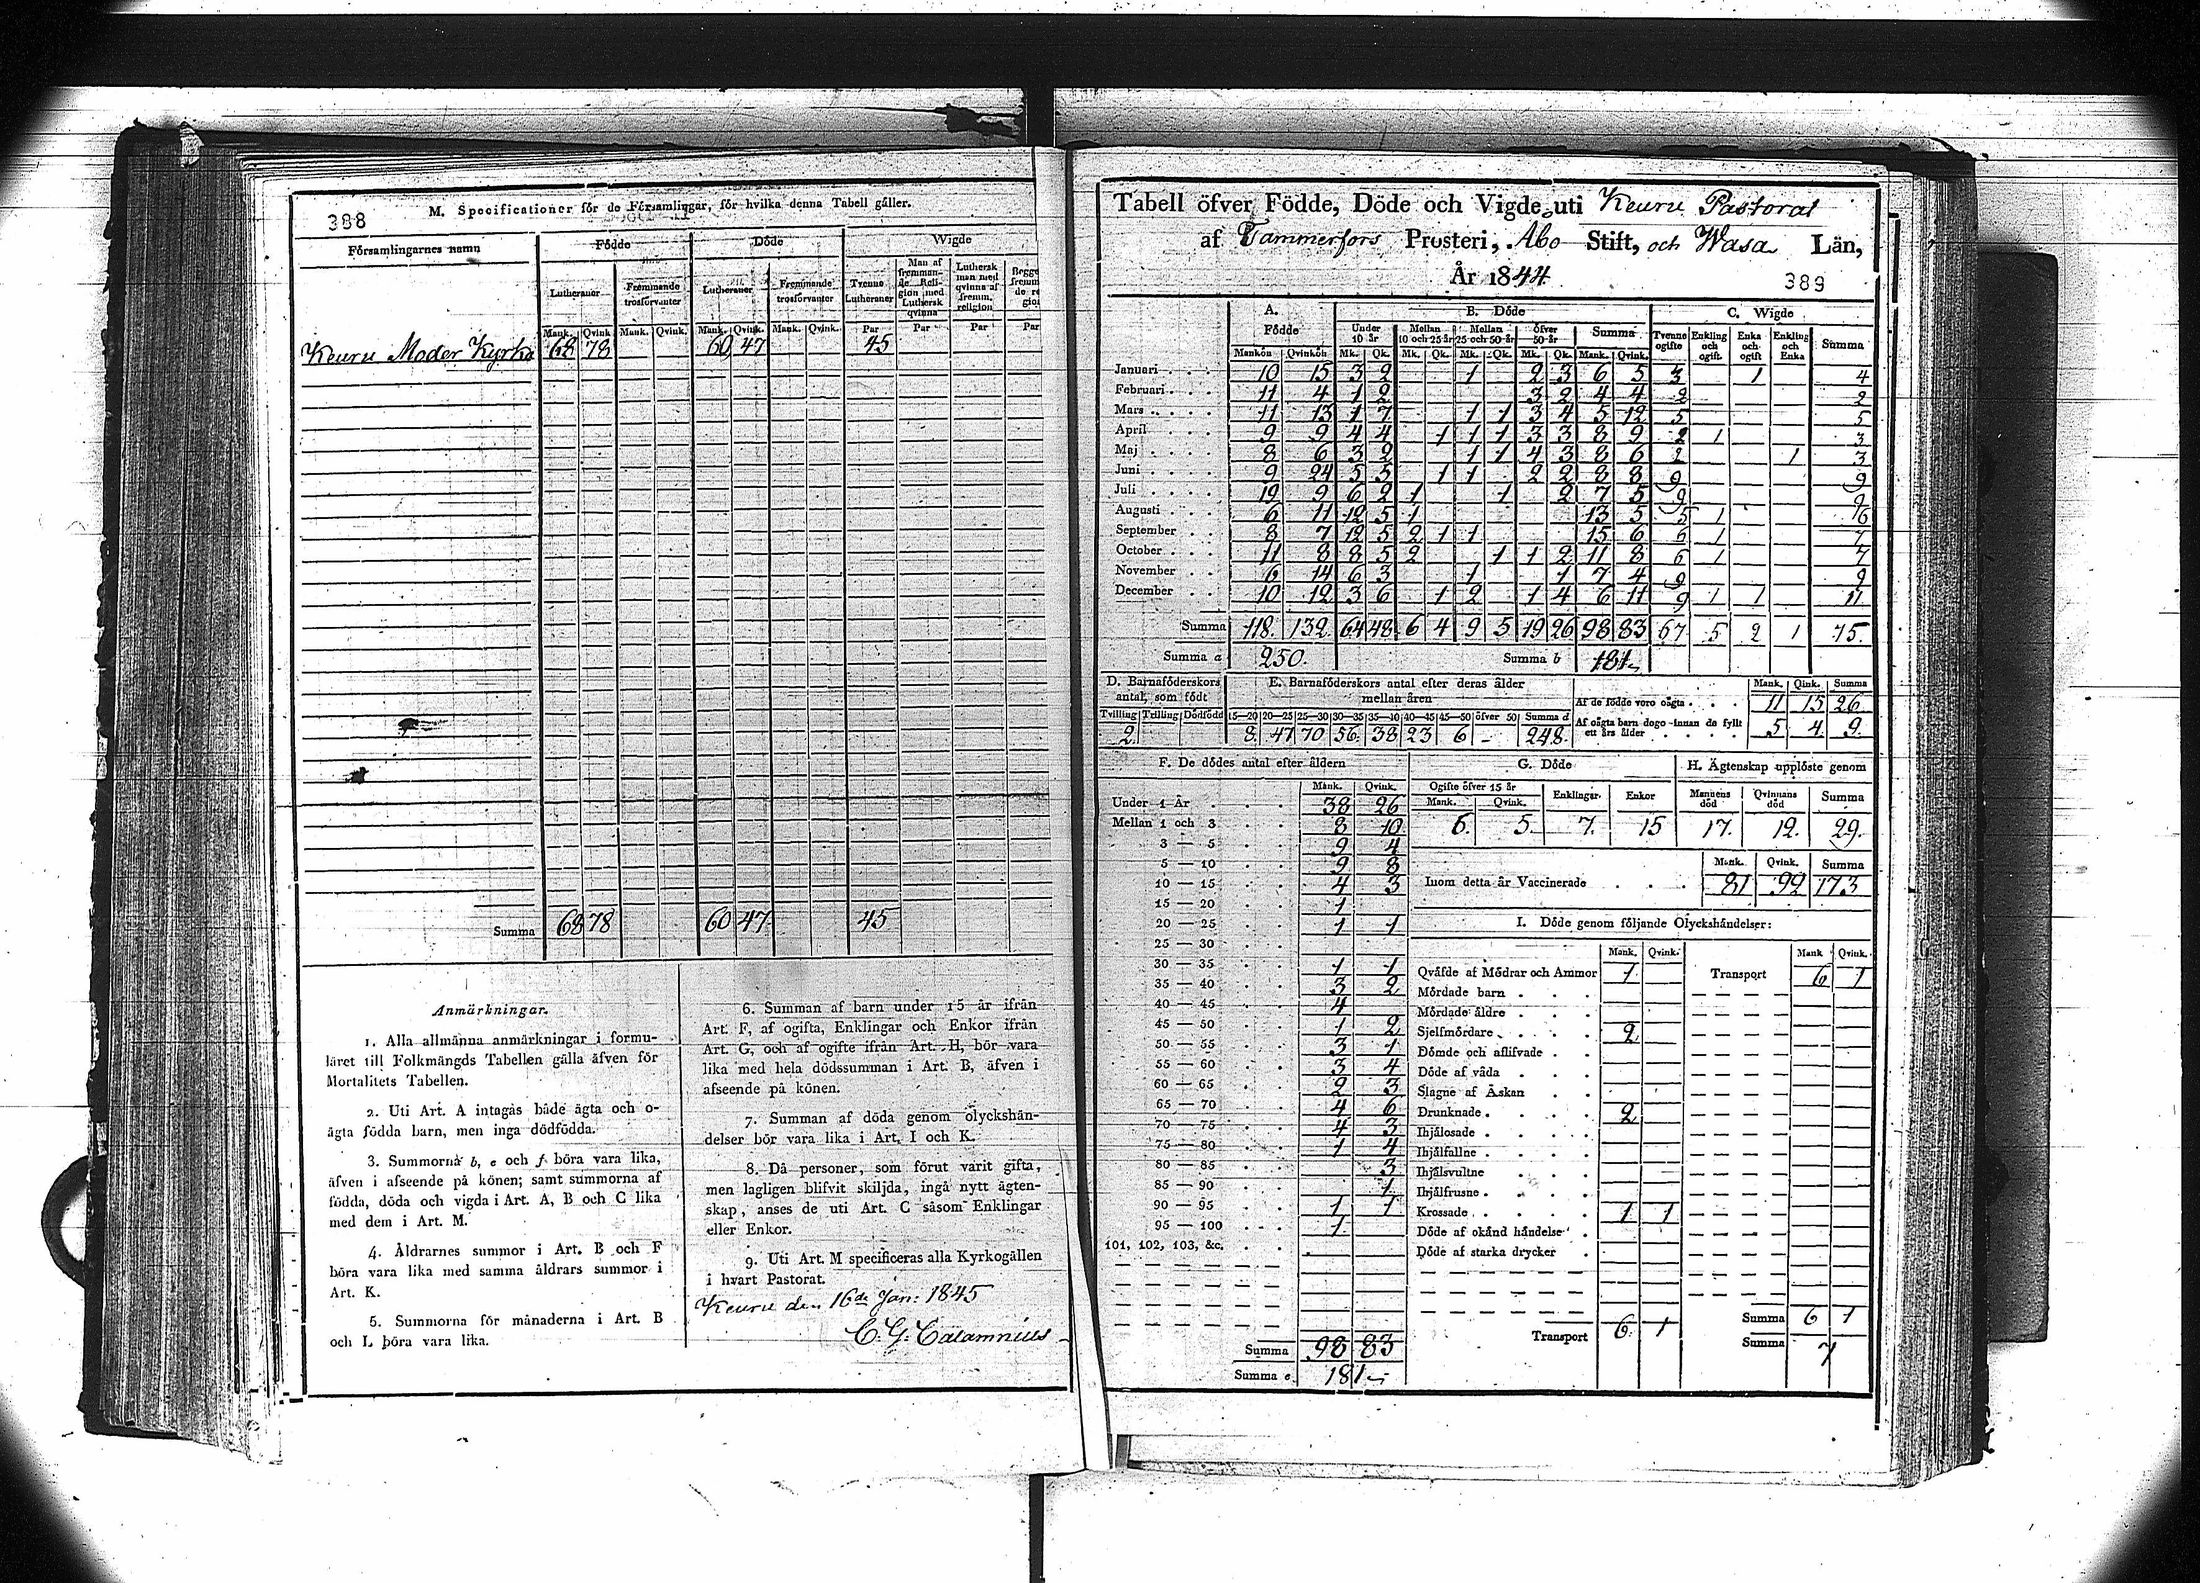 388
M. Specificationer för de Församlingar, för hvilka denna Tabell gäller.
Församlingarnes namn Födde Döde Wigde
Lutheraner Fremmande trosförvanter Lutheraner Fremmande trosförvanter Tvenne Lutheraner Man af fremmande Religion med Luthersk qvinna Luthersk man med qvinna af fremm. religion
Mank. Qvink. Mank. Qvink. Mank. Qvink. Mank. Qvink. Par Par Par Par
Keuru Moder Kyrka 68 78 60 47 45
Summa 68 78 60 47 45
Anmärkningar.
1. Alla allmänna anmärkningar i formu-
läret till Folkmängds Tabellen gälla äfven för
Mortalitets Tabellen.
2. Uti Art. A intagas både ägta och o-
ägta födda barn, men inga dödfödda.
3. Summorna b, e och f böra vara lika,
äfven i afseende på könen; samt summorna af
födda, döda och vigda i Art. A, B och C lika
med dem i Art. M.
4. Åldrarnes summor i Art. B och F
böra vara lika med samma åldrars summor i
Art. K.
5. Summorna för månaderna i Art. B
och L böra vara lika.
6. Summan af barn under 15 år ifrån
Art. F, af ogifta, Enklingar och Enkor ifrån
Art. G, och af ogifte ifrån Art. H, bör vara
lika med hela dödssumman i Art. B, äfven i
afseende på könen.
7. Summan af döda genom olyckshän-
delser bör vara lika i Art. I och K.
8. Då personer, som förut varit gifta,
men lagligen blifvit skiljda, ingå nytt ägten-
skap, anses de uti Art. C såsom Enklingar
eller Enkor.
9. Uti Art. M specificeras alla Kyrkogällen
i hvart Pastorat.
Keuru den 16de Jan: 1845
C. G. Calamnius
Tabell öfver Födde, Döde och Vigde uti Keuru Pastorat
af Tammerfors Prosteri, Åbo Stift, och Wasa Län,
År 1844.
389
A. Födde B. Döde C. Wigde
Under 10 år Mellan 10 och 25 år Mellan 25 och 50 år öfver 50 år Summa Tvenne ogifte Enkling och ogift Enka och ogift Enkling och Enka Summa
Mankön Qvinkön Mk. Qk. Mk. Qk. Mk. Qk. Mk. Qk. Mank. Qvink.
Januari 10 15 3 2 1 2 3 6 5 3 1 4
Februari 11 4 1 2 3 2 4 4 2 2
Mars 11 13 1 7 1 1 3 4 5 12 5 5
April 9 9 4 4 1 1 1 3 3 8 9 2 1 3
Maj 8 6 3 2 1 1 4 3 8 6 2 1 3
Juni 9 24 5 5 1 1 2 2 8 8 9 9
Juli 19 9 6 2 1 1 2 7 5 9 9
Augusti 6 11 12 5 1 13 5 5 1 6
September 8 7 12 5 2 1 1 15 6 6 1 7
October 11 8 8 5 2 1 1 2 11 8 6 1 7
November 6 14 6 3 1 1 7 4 9 9
December 10 12 3 6 1 2 1 4 6 11 9 1 1 11
Summa 118. 132. 64 48 6 4 9 5 19 26 98 83 67 5 2 1 75.
Summa a 250. Summa b 181
D. Barnaföderskors antal, som födt
E. Barnaföderskors antal efter deras ålder mellan åren
Tvilling Trilling Dödfödd 15—20 20—25 25—30 30—35 35—40 40—45 45—50 öfver 50 Summa d
2. 8. 47 70 56. 38 23 6 – 248.
Mank. Qink. Summa
Af de födde voro oägta 11 15 26
Af oägta barn dogo innan de fyllt ett års ålder 5 4 9.
F. De dödes antal efter åldern
Mank. Qvink.
Under 1 År 38 26
Mellan 1 och 3 8 10
3 — 5 9 4
5 — 10 9 8
10 — 15 4 3
15 — 20 1
20 — 25 1 1
25 — 30
30 — 35 1 1
35 — 40 3 2
40 — 45 4
45 — 50 1 2
50 — 55 3 1
55 — 60 3 4
60 — 65 2 3
65 — 70 4 6
70 — 75 4 3
75 — 80 1 4
80 — 85 3
85 — 90 1
90 — 95 1 1
95 — 100 1
101, 102, 103, &c.
Summa 98 83
Summa e 181
G. Döde
Ogifte öfver 15 år Enklingar Enkor
Mank. Qvink.
6. 5. 7. 15
H. Ägtenskap upplöste genom
Mannens död Qvinnans död Summa
17. 12. 29.
Mank. Qvink. Summa
Inom detta år Vaccinerade 81 92 173
I. Döde genom följande Olyckshändelser:
Mank. Qvink. Mank Qvink.
Qväfde af Mödrar och Ammor 1 Transport 6 1
Mördade barn
Mördade äldre
Sjelfmördare 2
Dömde och aflifvade
Döde af våda
Slagne af Åskan
Drunknade 2
Ihjälosade
Ihjälfallne
Ihjälsvultne
Ihjälfrusne
Krossade 1 1
Döde af okänd händelse
Döde af starka drycker
Transport 6. 1
Summa 6 1
Summa 7